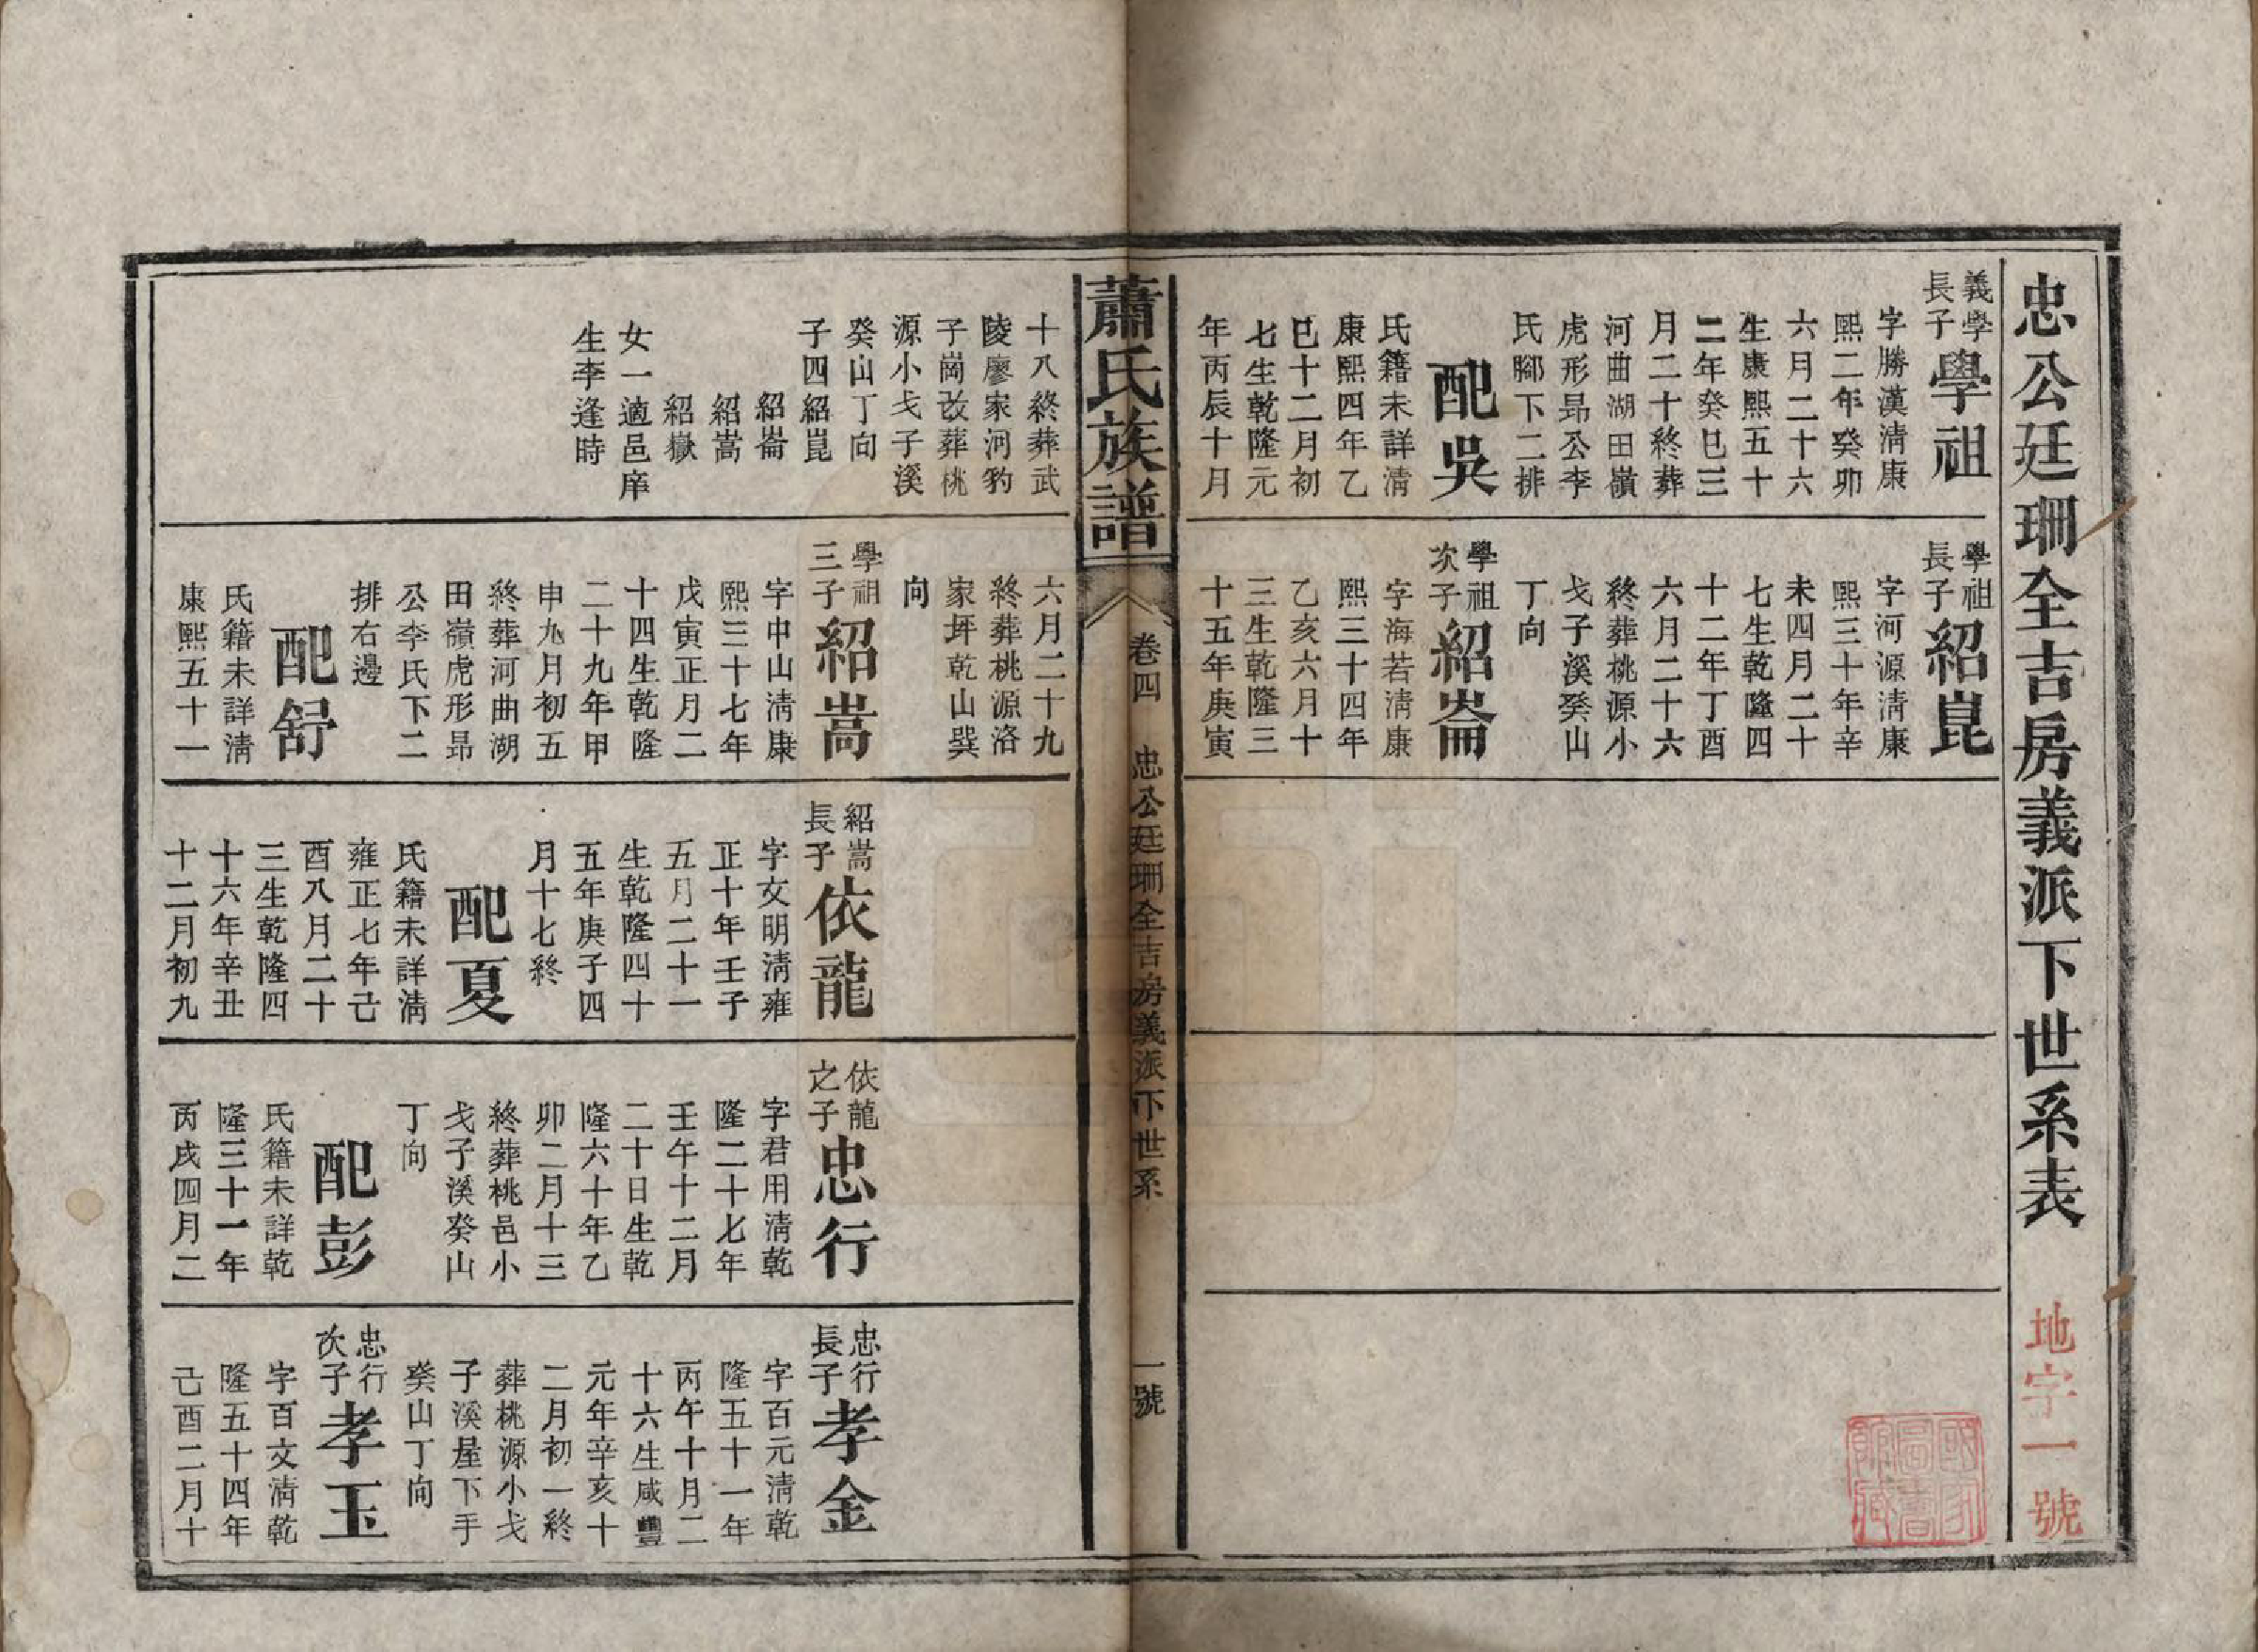 忠公廷珊全吉房義派下世系表
地字一號
義學
長子
學祖
字勝漢清康
熙二年癸卯
六月二十六
生康熙五十
二年癸巳三
月二十終葬
河曲湖田嶺
虎形昻公李
氏腳下二排
配吳
氏籍未詳清
康熙四年乙
巳十二月初
七生乾隆元
年丙辰十月
學祖
長子
紹崑
字河源清康
熙三十年辛
未四月二十
七生乾隆四
十二年丁酉
六月二十六
終葬桃源小
戈子溪癸山
丁向
學祖
次子
紹崙
字海若清康
熙三十四年
乙亥六月十
三生乾隆三
十五年庚寅
國家圖書館藏
蕭氏族譜
卷四
忠公廷珊全吉房義派下世系
一號
十八終葬武
陵廖家河豹
子崗改葬桃
源小戈子溪
癸山丁向
子四紹崑
紹崙
紹嵩
紹嶽
女一適邑庠
生李逢時
六月二十九
終葬桃源洛
家坪乾山巽
向
學祖
三子
紹嵩
字中山清康
熙三十七年
戊寅正月二
十四生乾隆
二十九年甲
申九月初五
終葬河曲湖
田嶺虎形昻
公李氏下二
排右邊
配舒
氏籍未詳清
康熙五十一
紹嵩
長子
依龍
字文明清雍
正十年壬子
五月二十一
生乾隆四十
五年庚子四
月十七終
配夏
氏籍未詳清
雍正七年己
酉八月二十
三生乾隆四
十六年辛丑
十二月初九
依龍
之子
忠行
字君用清乾
隆二十七年
壬午十二月
二十日生乾
隆六十年乙
卯二月十三
終葬桃邑小
戈子溪癸山
丁向
配彭
氏籍未詳乾
隆三十一年
丙戌四月二
忠行
長子
孝金
字百元清乾
隆五十一年
丙午十月二
十六生咸豐
元年辛亥十
二月初一終
葬桃源小戈
子溪屋下手
癸山丁向
忠行
次子
孝玉
字百文清乾
隆五十四年
己酉二月十